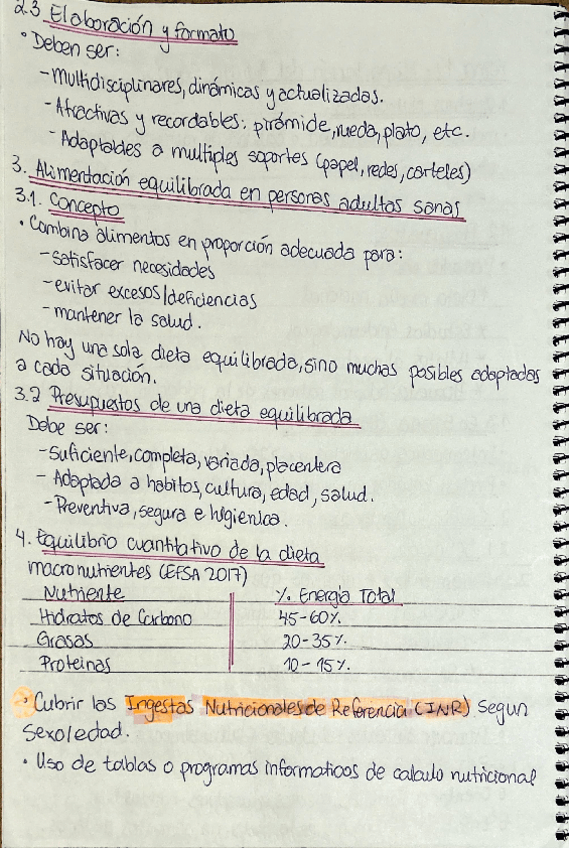 2.3 Elaboración y formato
• Deben ser:
- Multidisciplinares, dinámicas y actualizadas.
- Atractivas y recordables: pirámide, rueda, plato, etc.
- Adaptables a multiples soportes (papel, redes, carteles)
3. Alimentación equilibrada en personas adultas sanas
3.1. Concepto
• Combina alimentos en proporción adecuada para:
- satisfacer necesidades
- evitar excesos/deficiencias
- mantener la salud.
No hay una sola dieta equilibrada, sino muchas posibles adaptadas
a cada situación.
3.2 Presupuestos de una dieta equilibrada
Debe ser:
- Suficiente, completa, variada, placentera
- Adaptada a habitos, cultura, edad, salud.
- Preventiva, segura e higienica.
4. Equilibrio cuantitativo de la dieta
macronutrientes (EFSA 2017)
Nutriente % Energía Total
Hidratos de Carbono 45-60%
Grasas 20-35%
Proteinas 10-15%
• Cubrir las Ingestas Nutricionales de Referencia (INR) segun
sexo/edad.
• Uso de tablas o programas informaticos de calculo nutricional